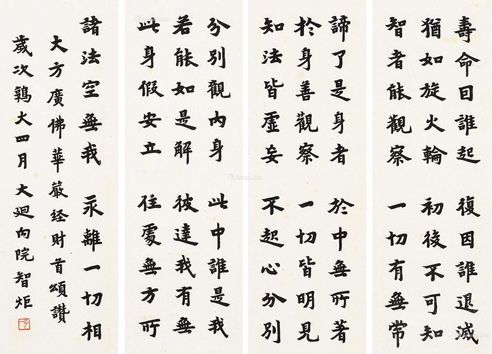 壽命因誰起　復因誰退滅
猶如旋火輪　初後不可知
智者能觀察　一切有無常
諦了是身者　於中無所著
於身善觀察　一切皆明見
知法皆虛妄　不起心分別
分別觀內身　此中誰是我
若能如是解　彼達我有無
此身假安立　住處無方所
諸法空無我　永離一切相
大方廣佛華嚴經財首頌讚
歲次鶉火四月　大迴向院智炬